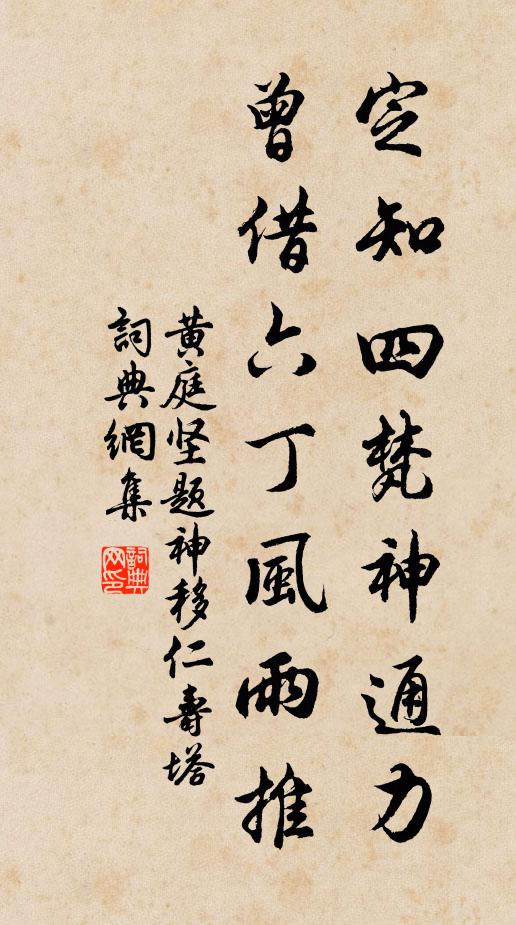 定知四梵神通力
曾借六丁風雨推
黄庭坚题神移仁壽塔
詞典網集
詞典網印